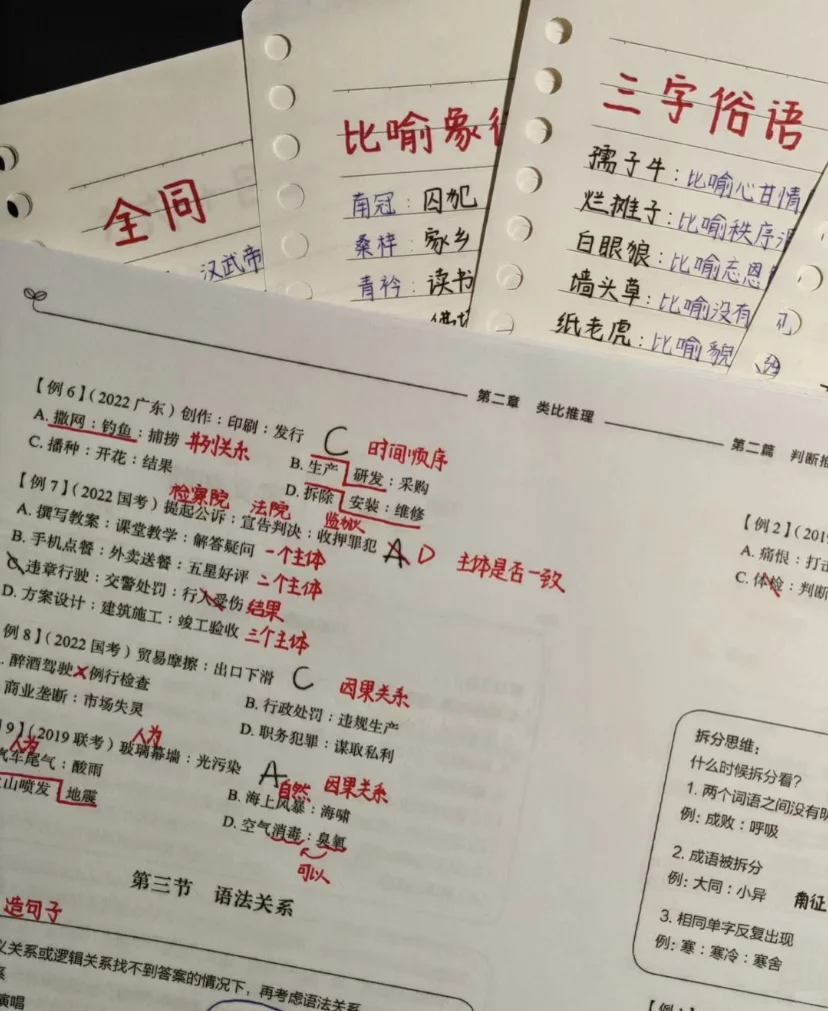 全同
汉武帝
比喻象
南冠：囚犯
桑梓：家乡
青衿：读书
三字俗语
孺子牛：比喻心甘情
烂摊子：比喻秩序
白眼狼：比喻忘恩
墙头草：比喻没有
纸老虎：比喻貌
第二章 类比推理
【例6】（2022广东）创作：印刷：发行 C 时间顺序
A. 撒网：钓鱼：捕捞 并列关系
B. 生产：研发：采购
C. 播种：开花：结果
D. 拆除：安装：维修
检察院 法院 监狱
【例7】（2022国考）提起公诉：宣告判决：收押罪犯 A D 主体是否一致
A. 撰写教案：课堂教学：解答疑问 一个主体
B. 手机点餐：外卖送餐：五星好评 二个主体
C. 违章行驶：交警处罚：行人受伤 结果
D. 方案设计：建筑施工：竣工验收 三个主体
例8】（2022国考）贸易摩擦：出口下滑 C 因果关系
. 醉酒驾驶：例行检查
B. 行政处罚：违规生产
商业垄断：市场失灵
D. 职务犯罪：谋取私利
9】（2019联考）玻璃幕墙：光污染 A 因果关系
人为 人为
汽车尾气：酸雨
自然
B. 海上风暴：海啸
山喷发：地震
D. 空气消毒：臭氧
可以
第三节 语法关系
造句子
义关系或逻辑关系找不到答案的情况下，再考虑语法关系
系
演唱
第二篇 判断推
【例2】（201
A. 痛恨：打击
C. 体检：判断
拆分思维：
什么时候拆分看？
1. 两个词语之间没有明
例：成败：呼吸
2. 成语被拆分
例：大同：小异
3. 相同单字反复出现
例：寒：寒冷：寒舍